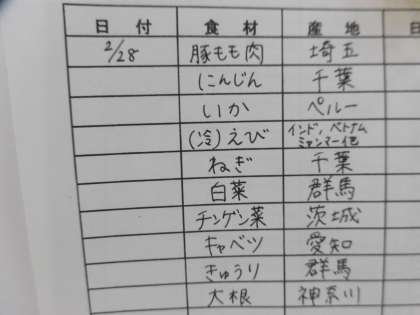 日付 食材 産地 日
2/28 豚もも肉 埼玉
にんじん 千葉
いか ペルー
(冷)えび インド、ベトナム
ミャンマー他
ねぎ 千葉
白菜 群馬
チンゲン菜 茨城
キャベツ 愛知
きゅうり 群馬
大根 神奈川